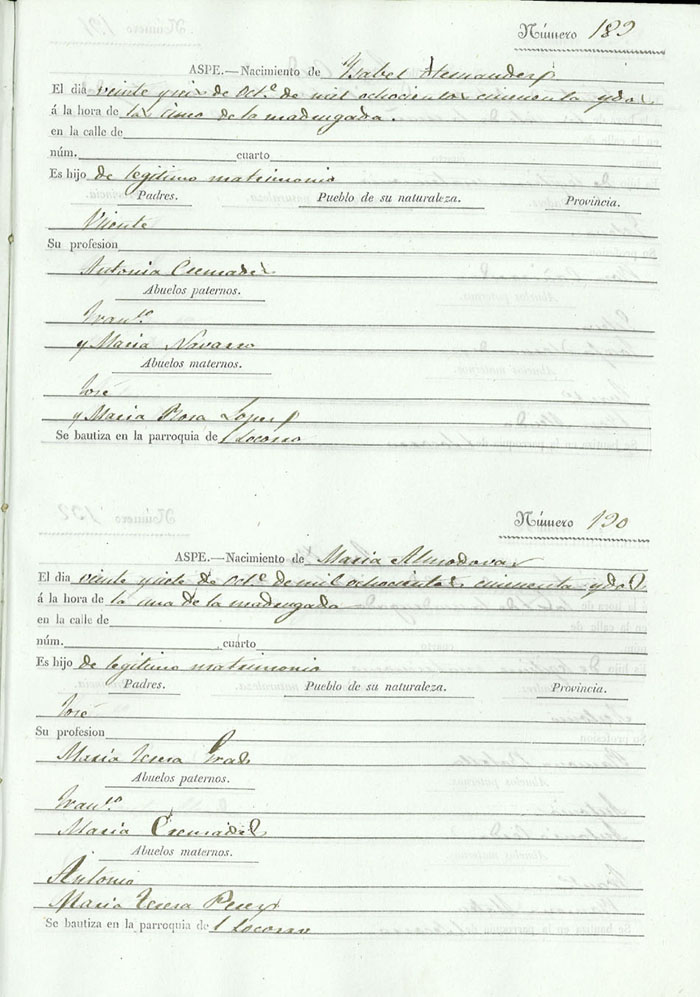 Número 189
ASPE.—Nacimiento de Ysabel Hernandez
El dia veinte y seis de Oct.e de mil ochocientos cincuenta y dos
á la hora de las cinco de la madrugada.
en la calle de
núm. cuarto
Es hijo de legitimo matrimonio
Padres. Pueblo de su naturaleza. Provincia.
Vicente
Su profesion
Antonia Cremades
Abuelos paternos.
Fran.co
y Maria Navarro
Abuelos maternos.
José
y Maria Rosa Lopez
Se bautiza en la parroquia de l Socorro
Número 190
ASPE.—Nacimiento de Maria Almodovar
El dia veinte y siete de Oct.e de mil ochocientos cincuenta y dos
á la hora de la una de la madrugada
en la calle de
núm. cuarto
Es hijo de legitimo matrimonio
Padres. Pueblo de su naturaleza. Provincia.
José
Su profesion
Maria Teresa
Abuelos paternos.
Fran.co
Maria Cremades
Abuelos maternos.
Antonio
Maria Teresa Perez
Se bautiza en la parroquia de l Socorro